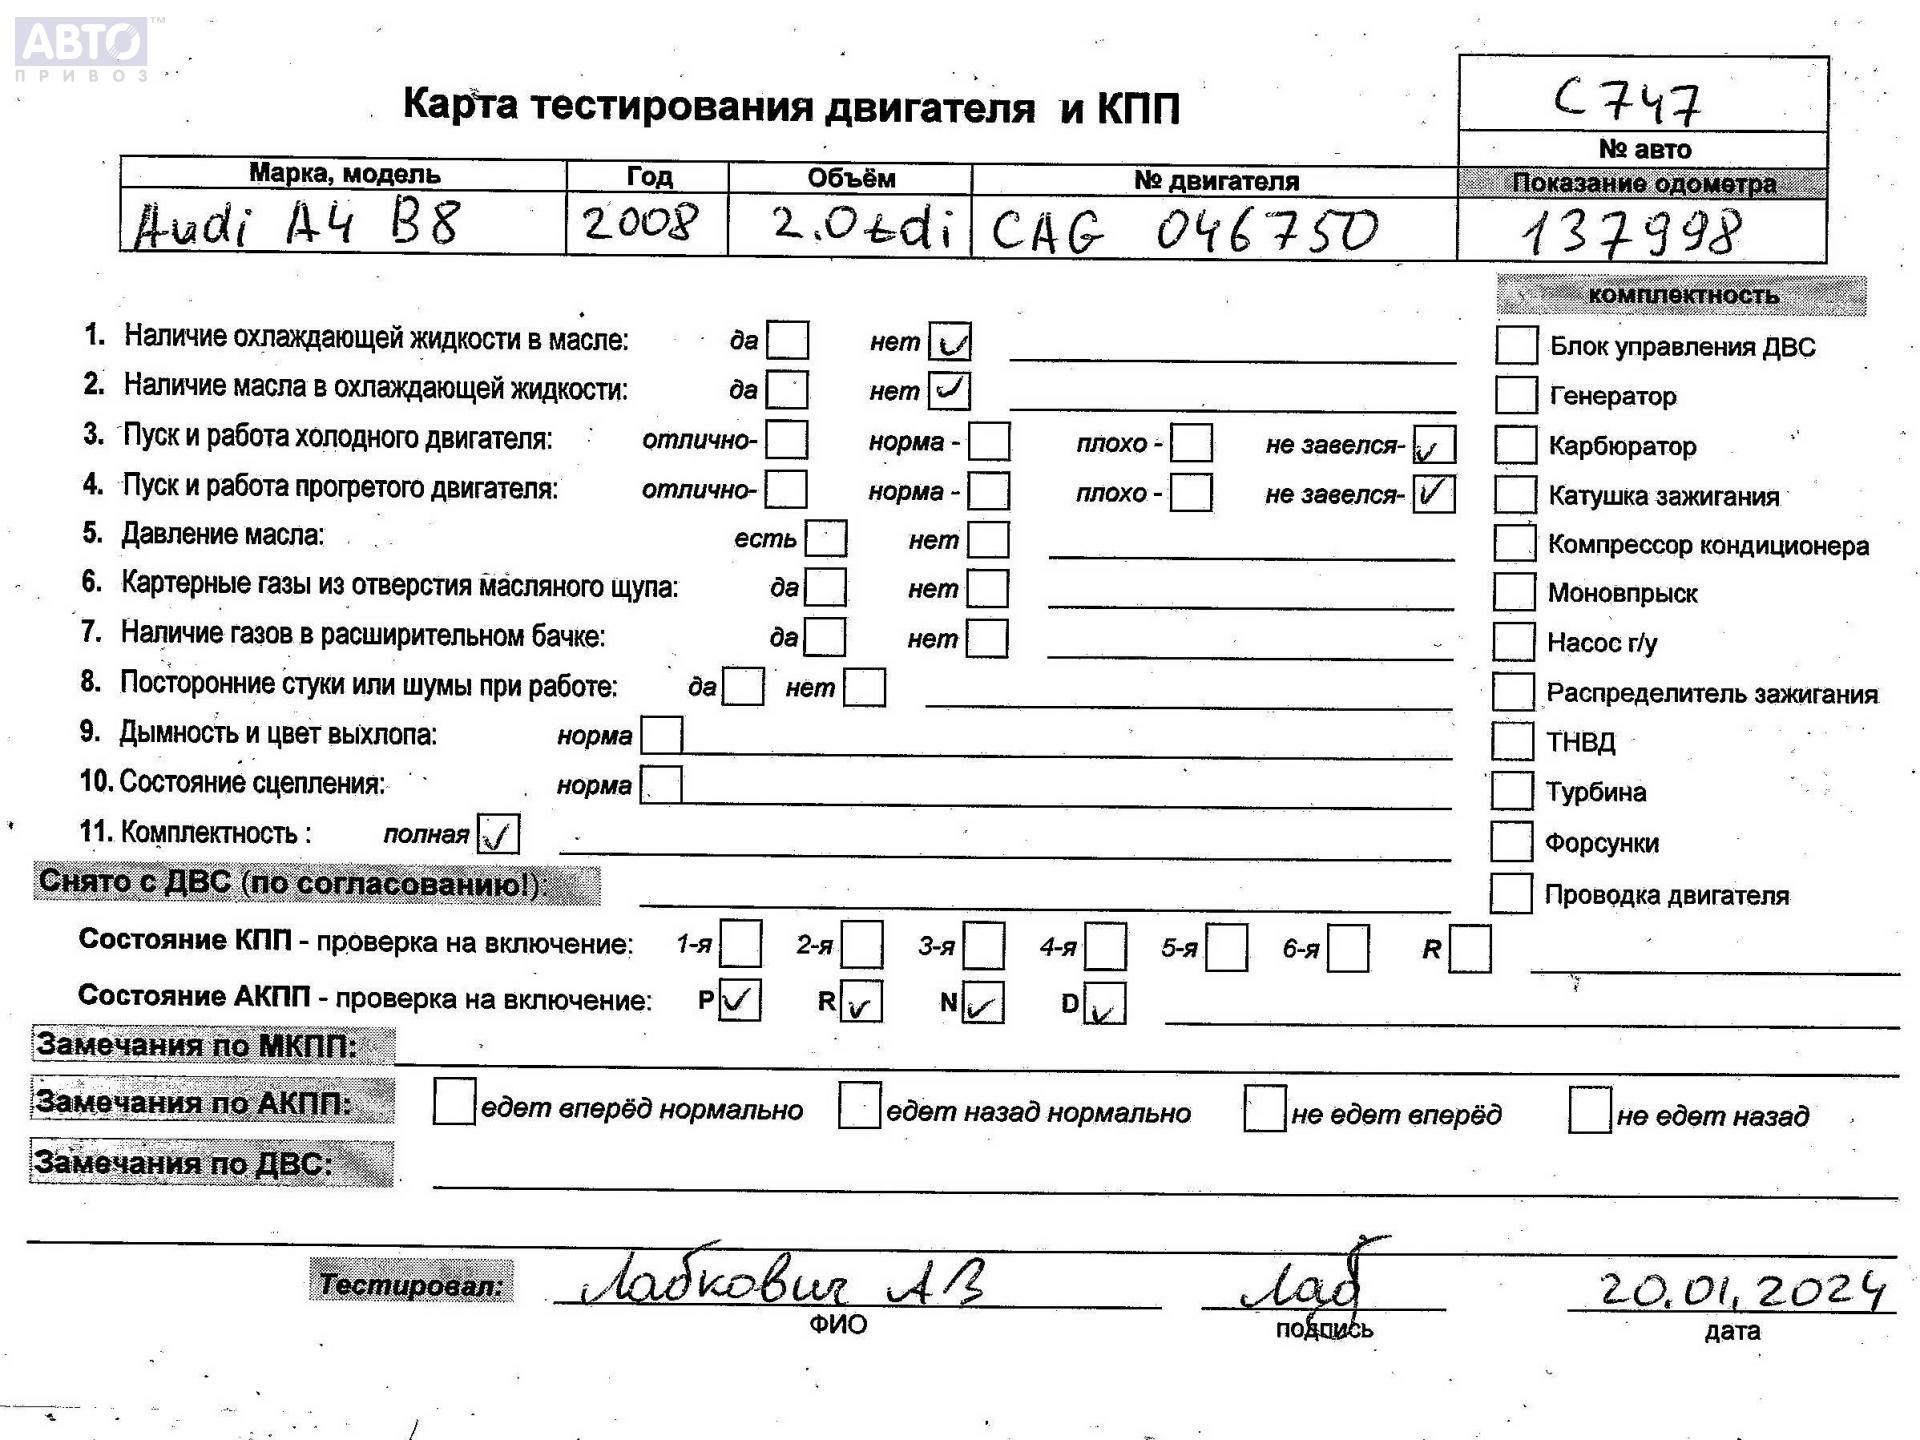 АВТО™
ПРИВОЗ
Карта тестирования двигателя и КПП
С747
№ авто
Марка, модель Год Объём № двигателя Показание одометра
Audi A4 B8 2008 2.0tdi CAG 046750 137998
комплектность
1. Наличие охлаждающей жидкости в масле: да нет ✓
Блок управления ДВС
2. Наличие масла в охлаждающей жидкости: да нет ✓
Генератор
3. Пуск и работа холодного двигателя: отлично- норма - плохо - не завелся- ✓
Карбюратор
4. Пуск и работа прогретого двигателя: отлично- норма - плохо - не завелся- ✓
Катушка зажигания
5. Давление масла: есть нет
Компрессор кондиционера
6. Картерные газы из отверстия масляного щупа: да нет
Моновпрыск
7. Наличие газов в расширительном бачке: да нет
Насос г/у
8. Посторонние стуки или шумы при работе: да нет
Распределитель зажигания
9. Дымность и цвет выхлопа: норма
ТНВД
10. Состояние сцепления: норма
Турбина
11. Комплектность : полная ✓
Форсунки
Снято с ДВС (по согласованию!):
Проводка двигателя
Состояние КПП - проверка на включение: 1-я 2-я 3-я 4-я 5-я 6-я R
Состояние АКПП - проверка на включение: P ✓ R ✓ N ✓ D ✓
Замечания по МКПП:
Замечания по АКПП: едет вперёд нормально едет назад нормально не едет вперёд не едет назад
Замечания по ДВС:
Тестировал: Лабкович АВ Лаб 20.01.2024
ФИО подпись дата